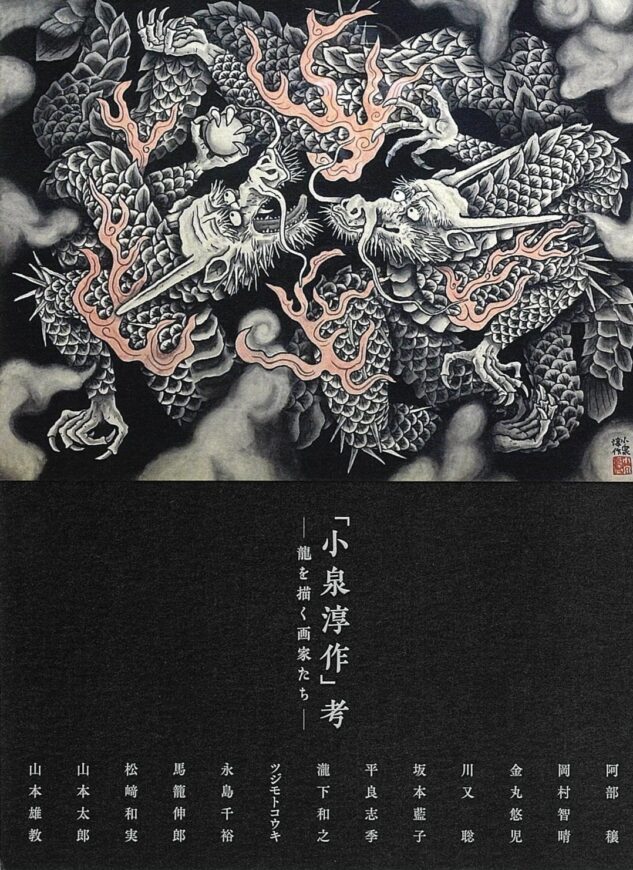 小泉
淳作
「小泉淳作」考
―龍を描く画家たち―
阿部 穣
岡村智晴
金丸悠児
川又 聡
坂本藍子
平良志季
瀧下和之
ツジモトコウキ
永島千裕
馬籠伸郎
松﨑和実
山本太郎
山本雄教